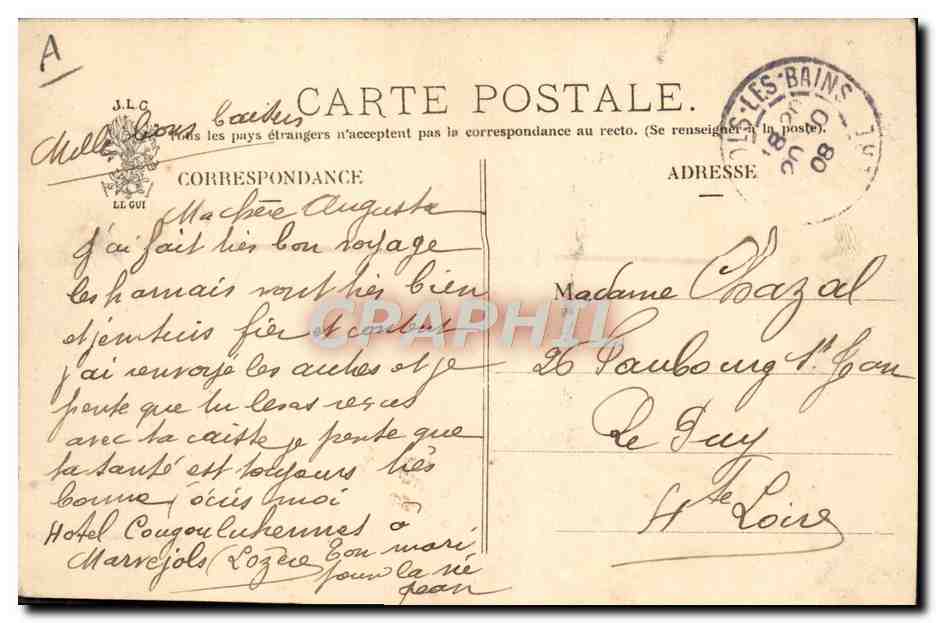 A
J.L.C.
LL GUI
CARTE POSTALE.
Mille bons baisers
Tous les pays étrangers n'acceptent pas la correspondance au recto. (Se renseigner à la poste).
OLS-LES-BAINS
20 08
CORRESPONDANCE
ADRESSE
Ma chère Augusta
J'ai fait très bon voyage
les harnais vont très bien
et j'en suis fier et content
j'ai renvoyé les autres et je
pense que tu les as reçus
avec ta caisse je pense que
ta santé est toujours très
bonne écris moi
Hotel
Marvejols (Lozère
Ton mari
pour la vie
Jean
Madame Chazal
26 Faubourg St Jean
Le Puy
Hte Loire
CPAPHIL